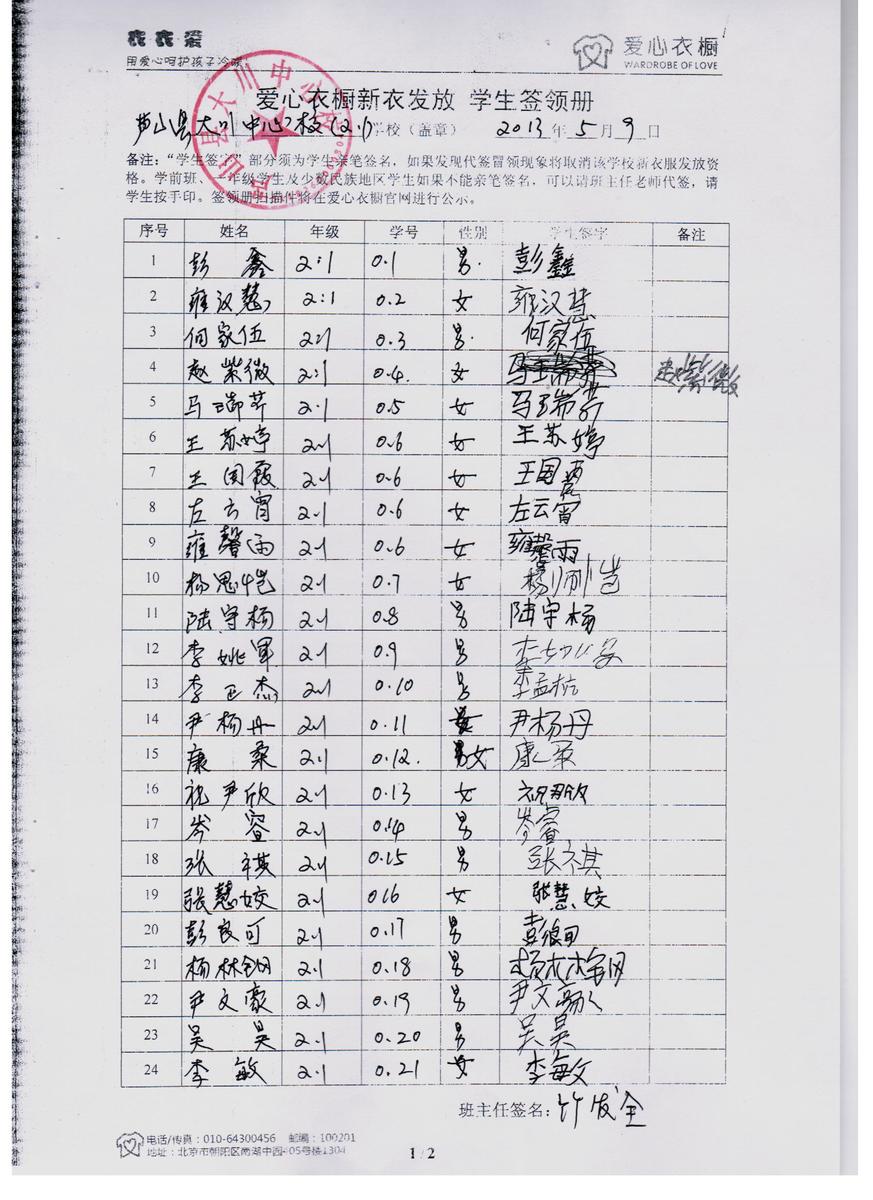 衣衣爱
用爱心呵护孩子冷暖
爱心衣橱
WARDROBE OF LOVE
爱心衣橱新衣发放 学生签领册
芦山县大川中心校(2.1)学校（盖章） 2013年5月9日
备注：“学生签字”部分须为学生亲笔签名，如果发现代签冒领现象将取消该学校新衣服发放资
格。学前班、一年级学生及少数民族地区学生如果不能亲笔签名，可以请班主任老师代签，请
学生按手印。签领册扫描件将在爱心衣橱官网进行公示。
序号 姓名 年级 学号 性别 学生签字 备注
1 彭鑫 2:1 0.1 男. 彭鑫
2 雍汉慧 2:1 0.2 女 雍汉慧
3 何家伍 2:1 0.3 男. 何家伍
4 赵紫微 2:1 0.4. 女 赵紫微
5 马瑞芹 2.1 0.5 女 马瑞芹
6 王苏婷 2.1 0.6 女 王苏婷
7 王国霞 2.1 0.6 女 王国霞
8 左云宵 2.1 0.6 女 左云宵
9 雍馨雨 2.1 0.6 女 雍馨雨
10 杨思恺 2.1 0.7 女
11 陆守杨 2.1 0.8 男 陆宇杨
12 李姚军 2.1 0.9 男
13 李正杰 2.1 0.10 男
14 尹杨丹 2.1 0.11 女 尹杨丹
15 康桑 2.1 0.12. 女 康
16 祝尹欣 2.1 0.13 女 祝尹欣
17 岑睿 2.1 0.14 男 岑睿
18 张祺 2.1 0.15 男 张祺
19 张慧姣 2.1 016 女 张慧姣
20 彭良可 2.1 0.17 男
21 杨林钢 2.1 0.18 男
22 尹文豪 2.1 0.19 男 尹文豪
23 吴昊 2.1 0.20 男 吴昊
24 李敏 2.1 0.21 女 李敏
班主任签名：竹发全
电话/传真：010-64300456 邮编：100201
地址：北京市朝阳区南湖中园405号楼1304
1/2